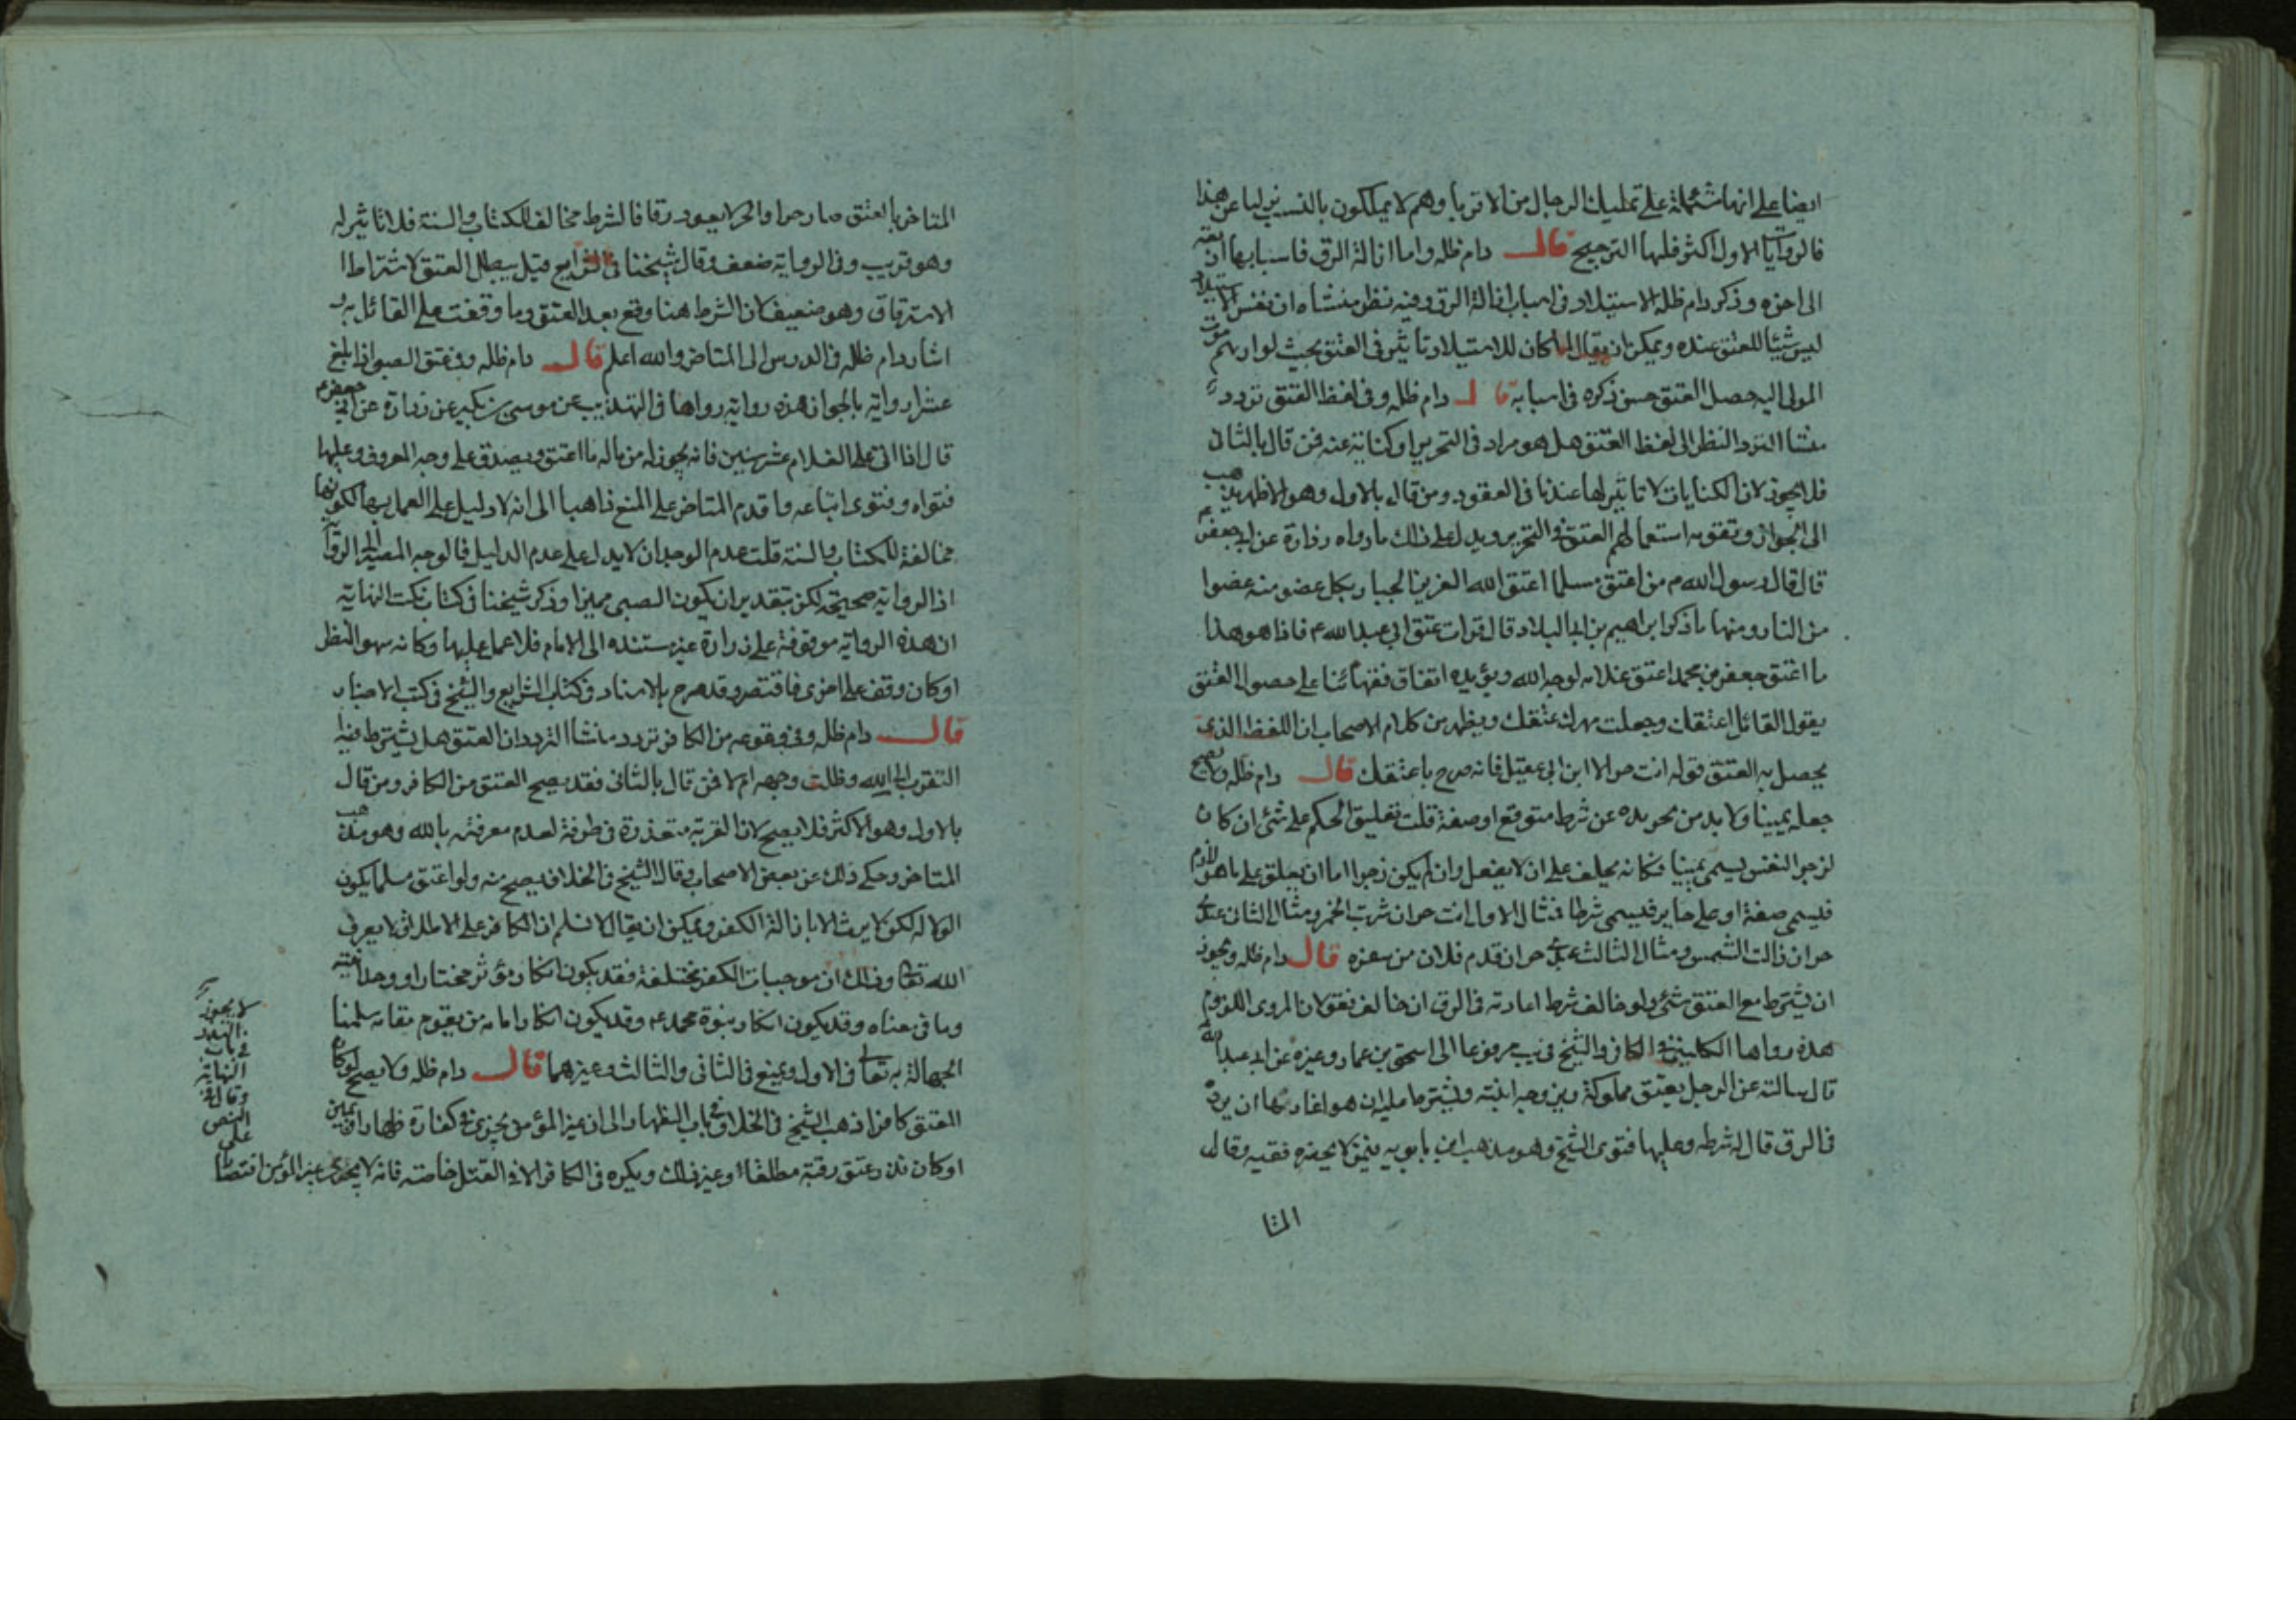 ايضا على انها مشتملة على تمليك الرجال من الاقربا وهم لا يملكون بالنسب عن هذا
فالروايات الاول اكثر فلها الترجيح قال دام ظله واما ازالة الرق فاسبابها اربعة
الى اخره وذكر دام ظله الاستيلاد في اسباب ازالة الرق وفيه نظر منشاه ان نفس الاستيلاد
ليس شيئا للعتق عنده ويمكن ان يقال لما كان للاستيلاد تاثير في العتق بحيث لو ارتهم موت
المولى اليه حصل العتق حسن ذكره في اسبابه قال دام ظله وفي لفظ العتق تردد
منشا التردد النظر الى لفظ العتق هل هو مراد في التحرير او كناية عنه فمن قال بالثانى
فلا يجوز لان الكنايات لا تاثير لها عندنا في العقود ومن قال بالاول وهو الاظهر يذهب
الى الجواز وتقويه استعمالهم العتق والتحرير ويدل على ذلك ما رواه زرارة عن ابي جعفر م
قال قال رسول الله م من اعتق مسلما اعتق الله العزيز الجبار بكل عضو منه عضوا
من النار ومنها ما ذكر ابراهيم بن ابي البلاد قال قرات عتق ابي عبدالله ع فاذا هو هذا
ما اعتق جعفر بن محمد اعتق غلامه لوجه الله ويؤيده اتفاق فقهائنا على حصول العتق
بقول القائل اعتقك وجعلت مهرك عتقك ويظهر من كلام الاصحاب ان اللفظ الذي
يحصل به العتق قوله انت حر الا ابن ابي عقيل فانه صرح باعتقك قال دام ظله ولا يصح
جعله يمينا ولا بد من تجريده عن شرط متوقع او صفة قلت تعليق الحكم على شئ ان كان
لزجر النفس يسمى يمينا فكانه يحلف على ان لا يفعل وان لم يكن زجرا اما ان يعلق على ما هو لازم
فيسمى صفة او على جايز فيسمى شرطا فمثال الاول انت حر ان شربت الخمر ومثال الثاني عبدي
حر ان زالت الشمس ومثال الثالث عبدي حر ان قدم فلان من سفره قال دام ظله ويجوز
ان يشترط مع العتق شئ ولو خالف شرط اعادته في الرق ان خالف فقولان المروى اللزوم
هذه رواها الكليني في الكافي والشيخ في يب مرفوعا الى اسحق بن عمار وغيره عن ابي عبدالله
قال سالته عن الرجل يعتق مملوكة ويزوجه ابنته ويشترط عليه ان هو اغارها ان يرده
في الرق قال له شرطه وعليها فتوى الشيخ وهو مذهب ابن بابويه فيمن لا يحضره فقيه وقال
المتا
المتاخر بالعتق صار حرا والحر لا يعود رقا فالشرط مخالف للكتاب والسنة فلا تاثير له
وهو قريب وفي الرواية ضعف وقال شيخنا في الشرايع قيل يبطل العتق لاشتراط
الاسترقاق وهو ضعيف لان الشرط هنا وقع بعد العتق وما وقفت على القائل به
اشار دام ظله في الدرس الى المتاخر والله اعلم قال دام ظله وفي عتق الصبي اذا بلغ
عشرا رواية بالجواز هذه رواية رواها في التهذيب عن موسى بن بكير عن زرارة عن ابي جعفر م
قال اذا اتى على الغلام عشر سنين فانه يجوز له من ماله ما اعتق ويصدق على وجه المعروف وعليها
فتواه وفتوى اتباعه واقدم المتاخر على المنع ذاهبا الى انه لا دليل على العمل بها لكونها
مخالفة للكتاب والسنة قلت عدم الوجدان لا يدل على عدم الدليل فالوجه المصير الى الرواية
اذ الرواية صحيحة لكن بتقدير ان يكون الصبى مميزا وذكر شيخنا في كتاب نكت النهاية
ان هذه الرواية موقوفة على زرارة غير مستنده الى الامام فلا عمل عليها وكانه سهو النظر
او كان وقف على اخرى فاقتصر وقد صرح بالاسناد في كتاب الشرايع والشيخ في كتب الاخبار
قال دام ظله وفي وقوعه من الكافر تردد منشا التردد ان العتق هل يشترط فيه
التقرب الى الله وطلب وجهه ام لا فمن قال بالثانى فقد يصح العتق من الكافر ومن قال
بالاول وهو الاكثر فلا يصح لان القربة متعذرة في طرفه لعدم معرفته بالله وهو مذهب
المتاخر وحكى ذلك عن بعض الاصحاب وقال الشيخ في الخلاف يصح منه ولو اعتق مسلما يكون
الولا له لكن لا يرث الا بازالة الكفر ويمكن ان يقال لا نسلم ان الكافر على الاطلاق لا يعرف
الله تعالى وذلك ان موجبات الكفر مختلفة فقد يكون انكار مؤثر مختار او وحدانيته
وما في معناه وقد يكون انكار بنوة محمد ع وقد يكون انكار امامه من يقوم مقامه سلمنا
الجهالة به تعالى في الاول ونمنع في الثانى والثالث وغيرهما قال دام ظله ولا يصح لو كان
المعتق كافرا ذهب الشيخ في الخلاف في باب الظهار الى ان غير المؤمن يجزي في كفارة ظهار او يمين
او كان نذر عتق رقبة مطلقا او غير ذلك ويكره في الكافر الا في القتل خاصته فانه لا يجزي غير المؤمن اقتصا
لا يجوز
في باب
النهاية
وقال في
النص
على